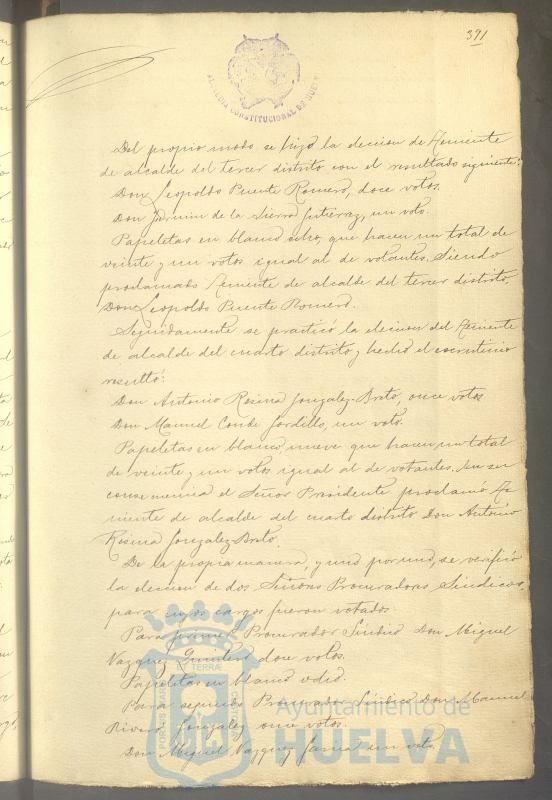 391
ALCALDIA CONSTITUCIONAL DE HUELVA
Del propio modo se hizo la eleccion de Teniente
de alcalde del tercer distrito con el resultado siguiente:
Don Leopoldo Puente Romero, doce votos.
Don Fermin de la Sierra Gutierrez, un voto.
Papeletas en blanco ocho, que hacen un total de
veinte y un votos igual al de votantes. Siendo
proclamado Teniente de alcalde del tercer distrito,
Don Leopoldo Puente Romero.
Seguidamente se practicó la eleccion del Teniente
de alcalde del cuarto distrito y hecho el escrutinio
resultó:
Don Antonio Resina Gonzalez-Breto, once votos
Don Manuel Conde Gordillo, un voto.
Papeletas en blanco nueve que hacen un total
de veinte y un votos igual al de votantes. En su
consecuencia el Señor Presidente proclamó Te-
niente de alcalde del cuarto distrito Don Antonio
Resina Gonzalez-Breto.
De la propia manera, y uno por uno, se verificó
la eleccion de dos Señores Procuradores Sindicos,
para cuyos cargos fueron votados:
Para primer Procurador Sindico Don Miguel
Vazquez Quintero doce votos.
Papeletas en blanco ocho.
Para segundo Procurador Sindico Don Manuel
Rivero Gonzalez once votos.
Don Miguel Vazquez Garcia un voto.
PORTUS MARIS ET TERRAE CUSTODIA
Ayuntamiento de
HUELVA